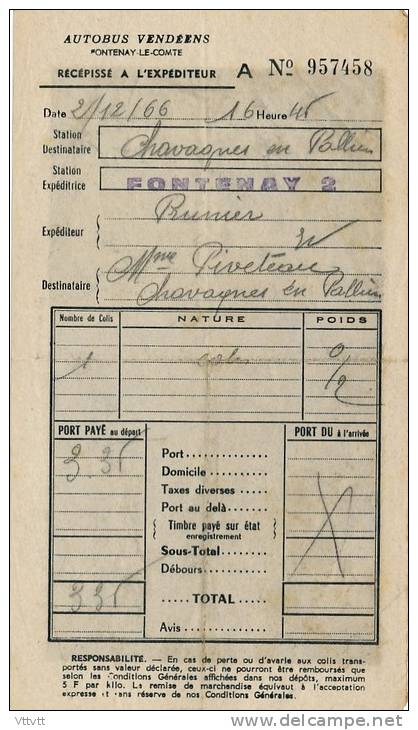 AUTOBUS VENDÉENS
FONTENAY-LE-COMTE
RÉCÉPISSÉ A L'EXPÉDITEUR A Nº 957458
Date 2/12/66 16 Heure 45
Station
Destinataire Chavagnes en Paillers
Station
Expéditrice FONTENAY 2
Expéditeur Brunier
Mme Piveteau
Destinataire Chavagnes en Paillers
Nombre de Colis NATURE POIDS
1 colis
PORT PAYÉ au départ PORT DU à l'arrivée
3.35 Port
Domicile
Taxes diverses
Port au delà
Timbre payé sur état
enregistrement
Sous-Total
Débours
3.35 TOTAL
Avis
RESPONSABILITE. — En cas de perte ou d'avarie aux colis trans-
portés sans valeur déclarée, ceux-ci ne pourront être remboursés que
selon les Conditions Générales affichées dans nos dépôts, maximum
5 F par kilo. La remise de marchandise équivaut à l'acceptation
expresse et sans réserve de nos Conditions Générales.
Vttvtt
delcampe.net